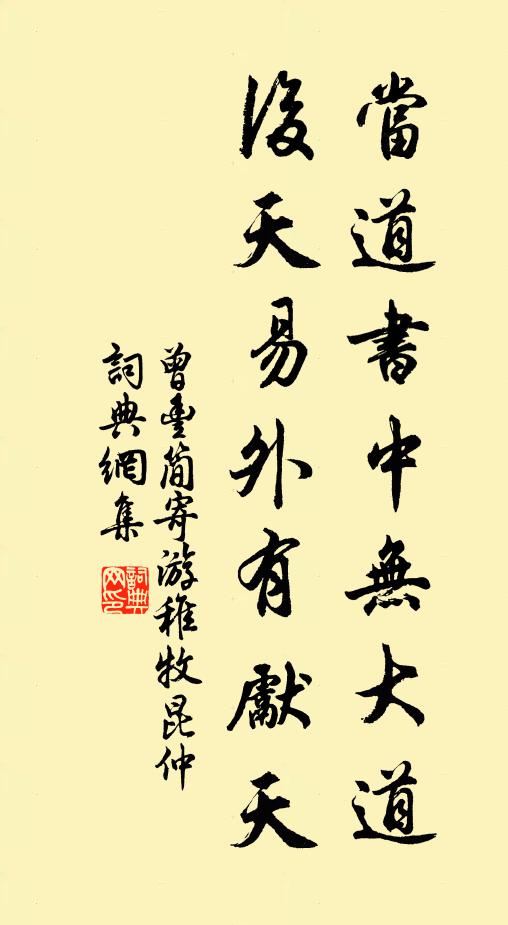 當道書中無大道
後天易外有獻天
曾豊簡寄游稚牧昆仲
詞典網集
詞典網印